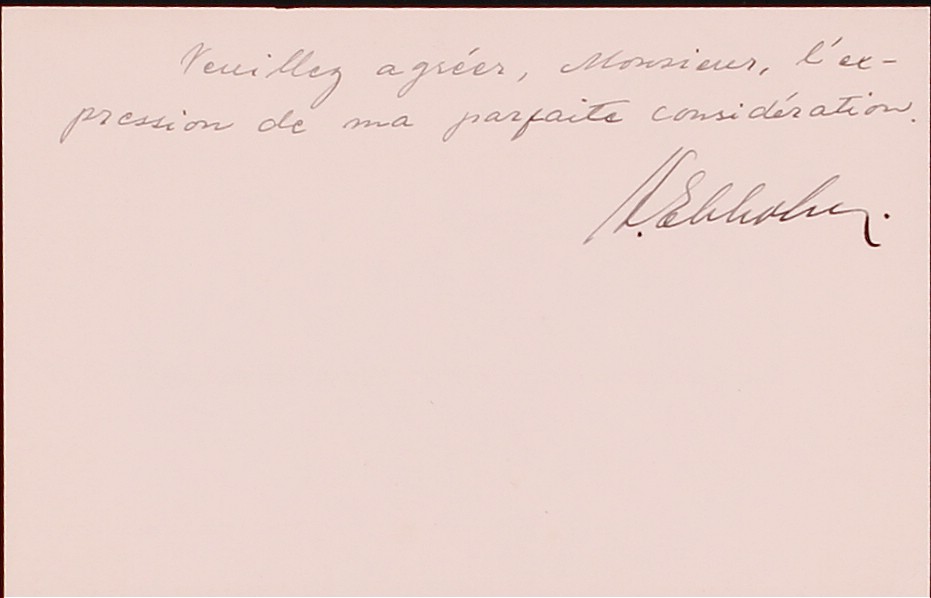 Veuillez agréer, Monsieur, l'ex-
pression de ma parfaite considération.